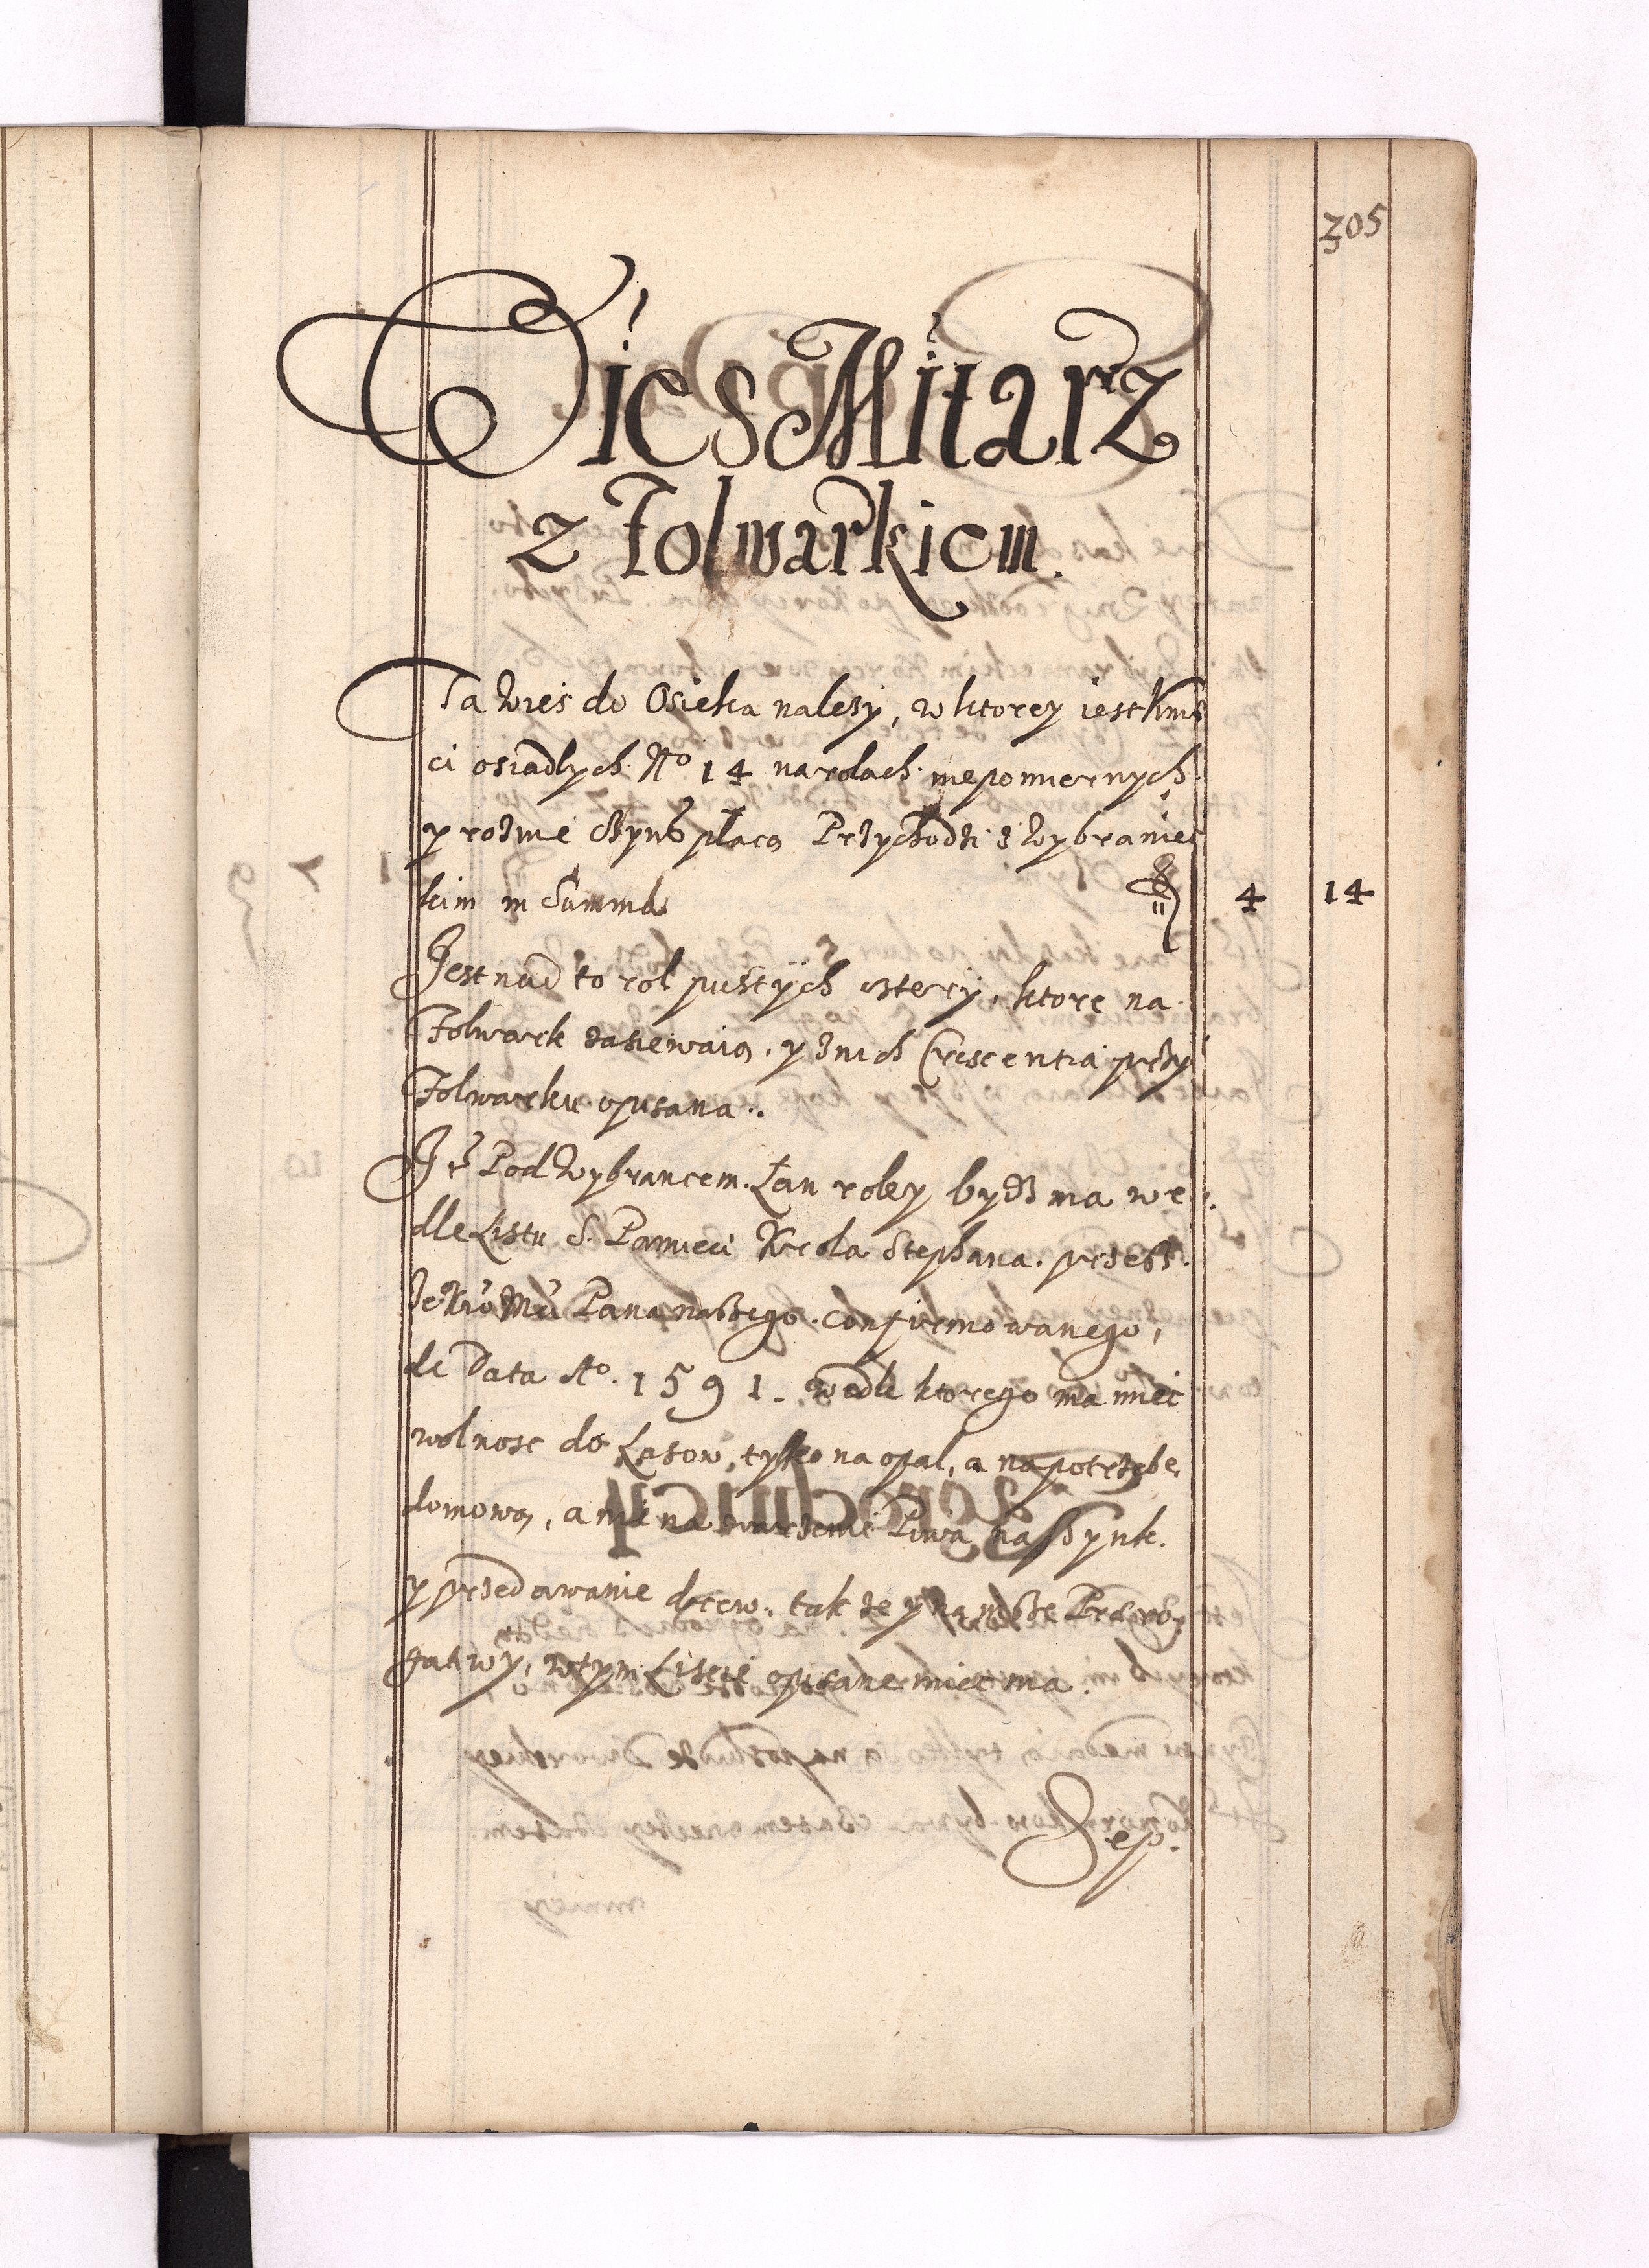 305
Wies Mitarz
z Folwarkiem.
Ta Wieś do Osieka należy, w ktorey iest Kmie
ci osiadłych No 14 na rolach niepomiernych
y rożnie Czynß płacą Przychodzi z Wybraniec
kim in Summa 4 14
Jest nad to rol pustych cztery, ktore na
Folwark zasiewaią, y z nich Crescentia przy
Folwarku opisana.
It Pod Wybrancem Łan roley bydź ma we
dle Listu S. Pamięci Krola Stephana. przeß
Je Kro Mci Pana naßego confirmowanego,
de Data Ao. 1591. Wedle ktorego ma miec
wolnosc do Lasow, tylko na opal, a na potrzebę
domową, a nie na warzenie Piwa na ßynk.
y przedawanie drew. tak że y na inße Prero
gatiwy, w tym Liscie opisane miec ma.
Sep.